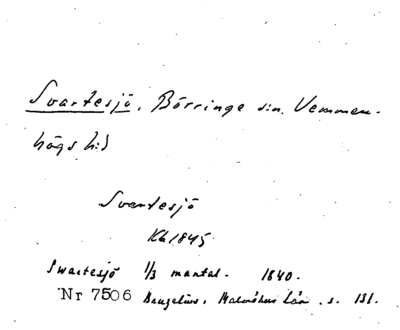 Svartesjö, Börringe s:n. Vemmen-
högs h:d
Svartesjö
Kb 1845
Swartesjö 1/3 mantal. 1840.
Nr 7506 Bauzelius, Malmöhus Län. s. 131.